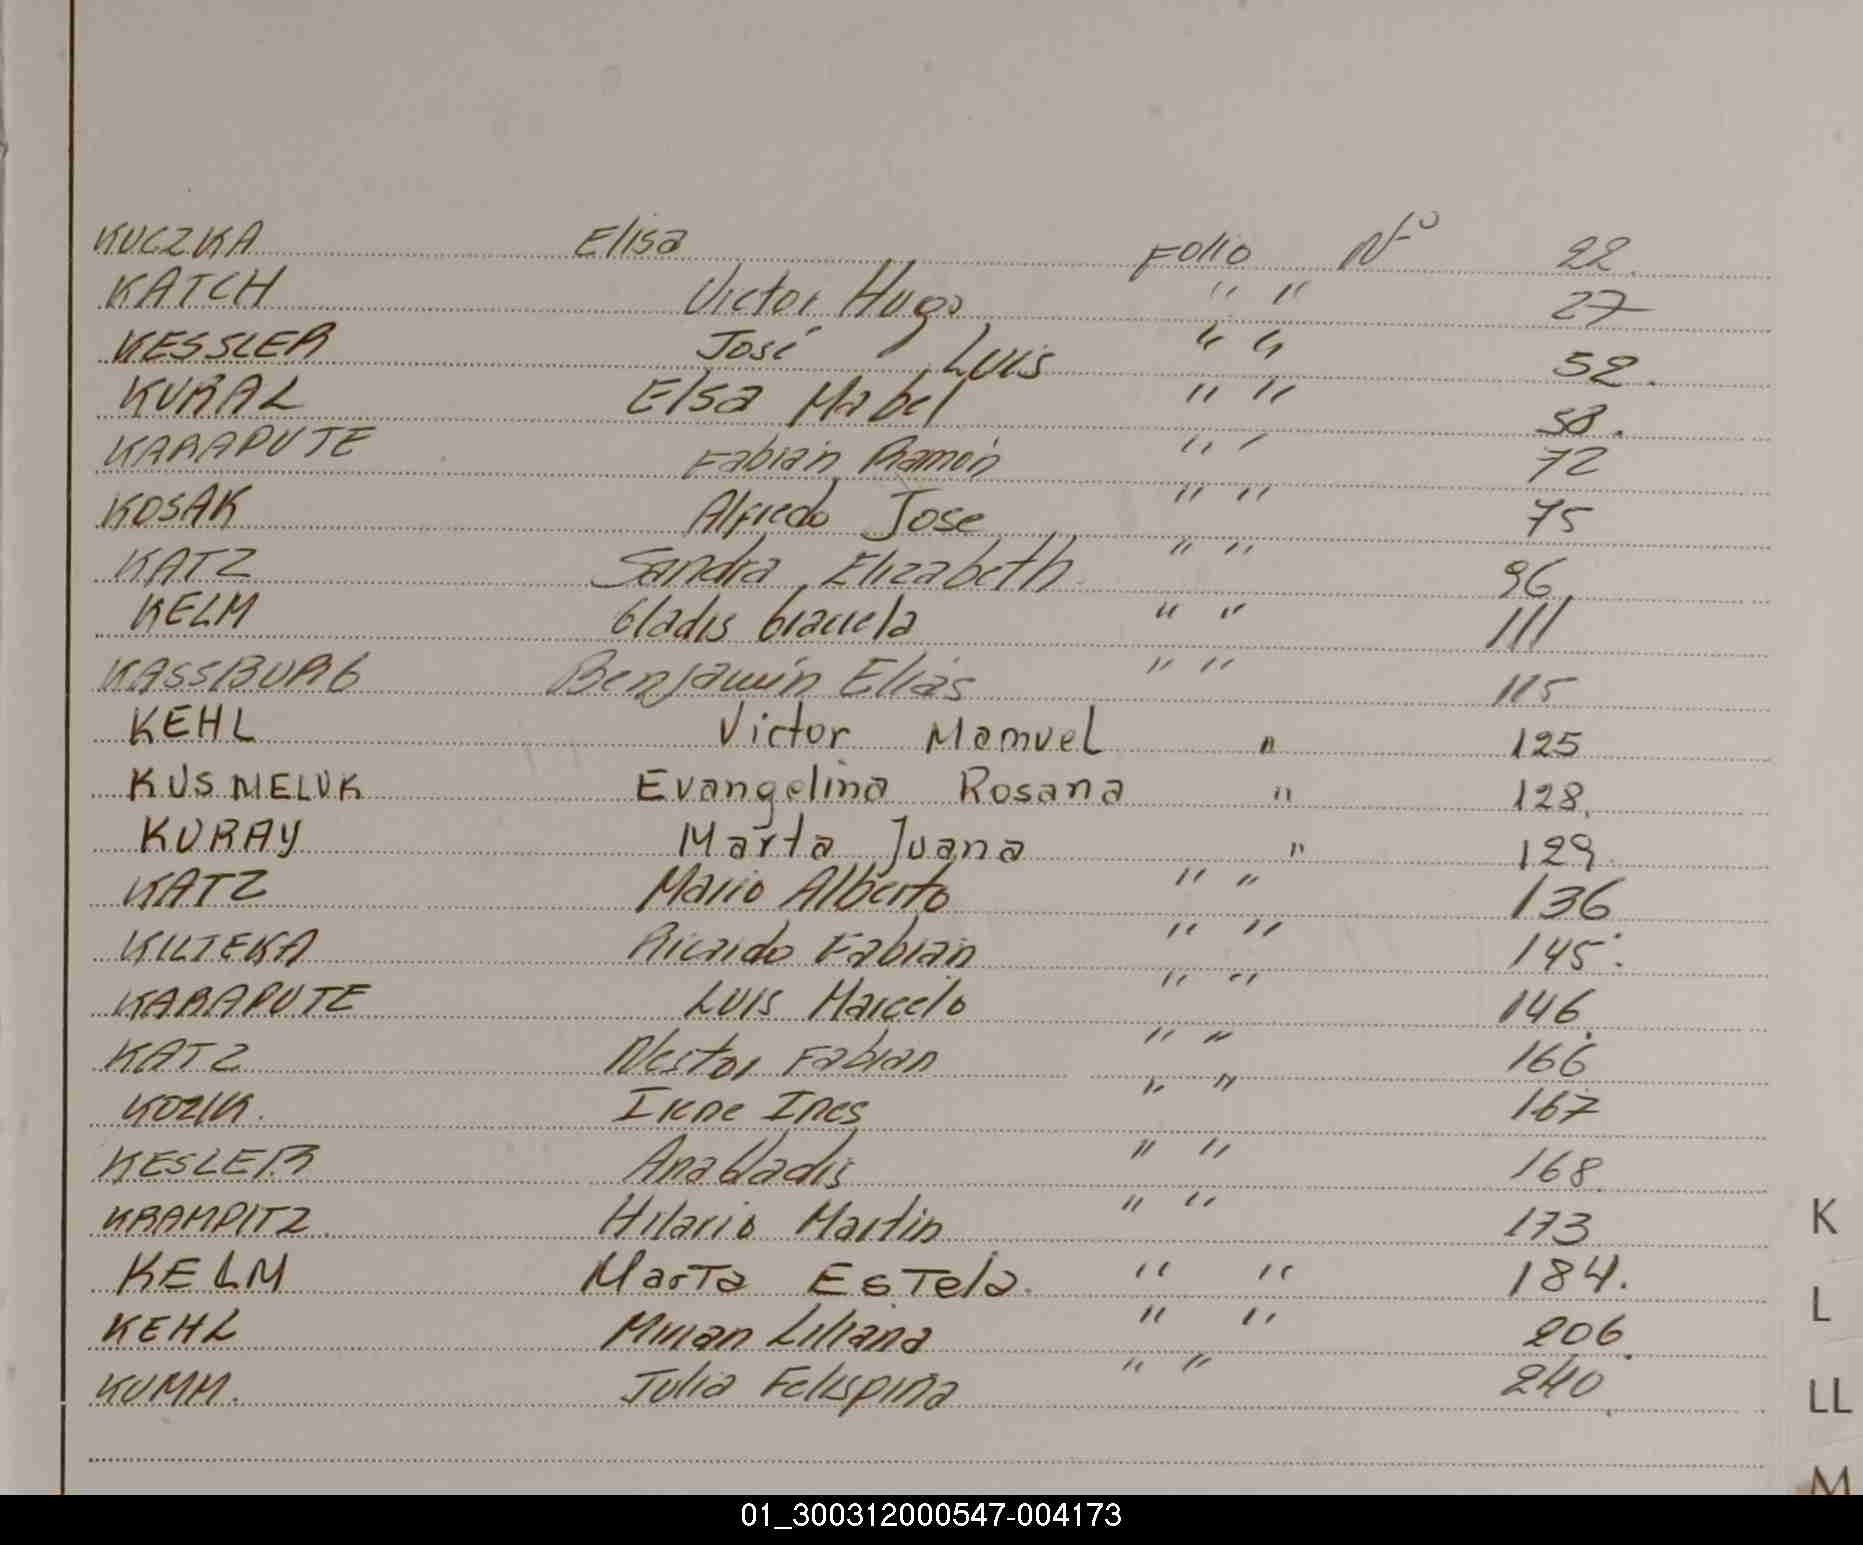 KUCZKA Elisa Folio Nº 22.
KATCH Victor Hugo " " 27
KESSLER José Luis " " 52.
KURAL Elsa Mabel " " 58.
KARAPUTE Fabián Ramón " " 72
KOSAK Alfredo Jose " " 75
KATZ Sandra Elizabeth " " 96
KELM Gladis Graciela " " 111
KASSBURG Benjamín Elías " " 115
KEHL Victor Manuel " 125
KUSMELUK Evangelina Rosana " 128.
KURAY Marta Juana " 129
KATZ Mario Alberto " " 136
KILTEKA Ricardo Fabian " " 145.
KARAPUTE Luis Marcelo " " 146.
KATZ Nestor Fabian " " 166
KOZIK. Irene Ines " " 167
KESLER Ana Gladis " " 168
KRAMPITZ Hilario Martin " " 173
KELM Marta Estela. " " 184.
KEHL Mirian Liliana " " 206.
KUMM. Julia Felispina " " 240
K
L
LL
M
01_300312000547-004173